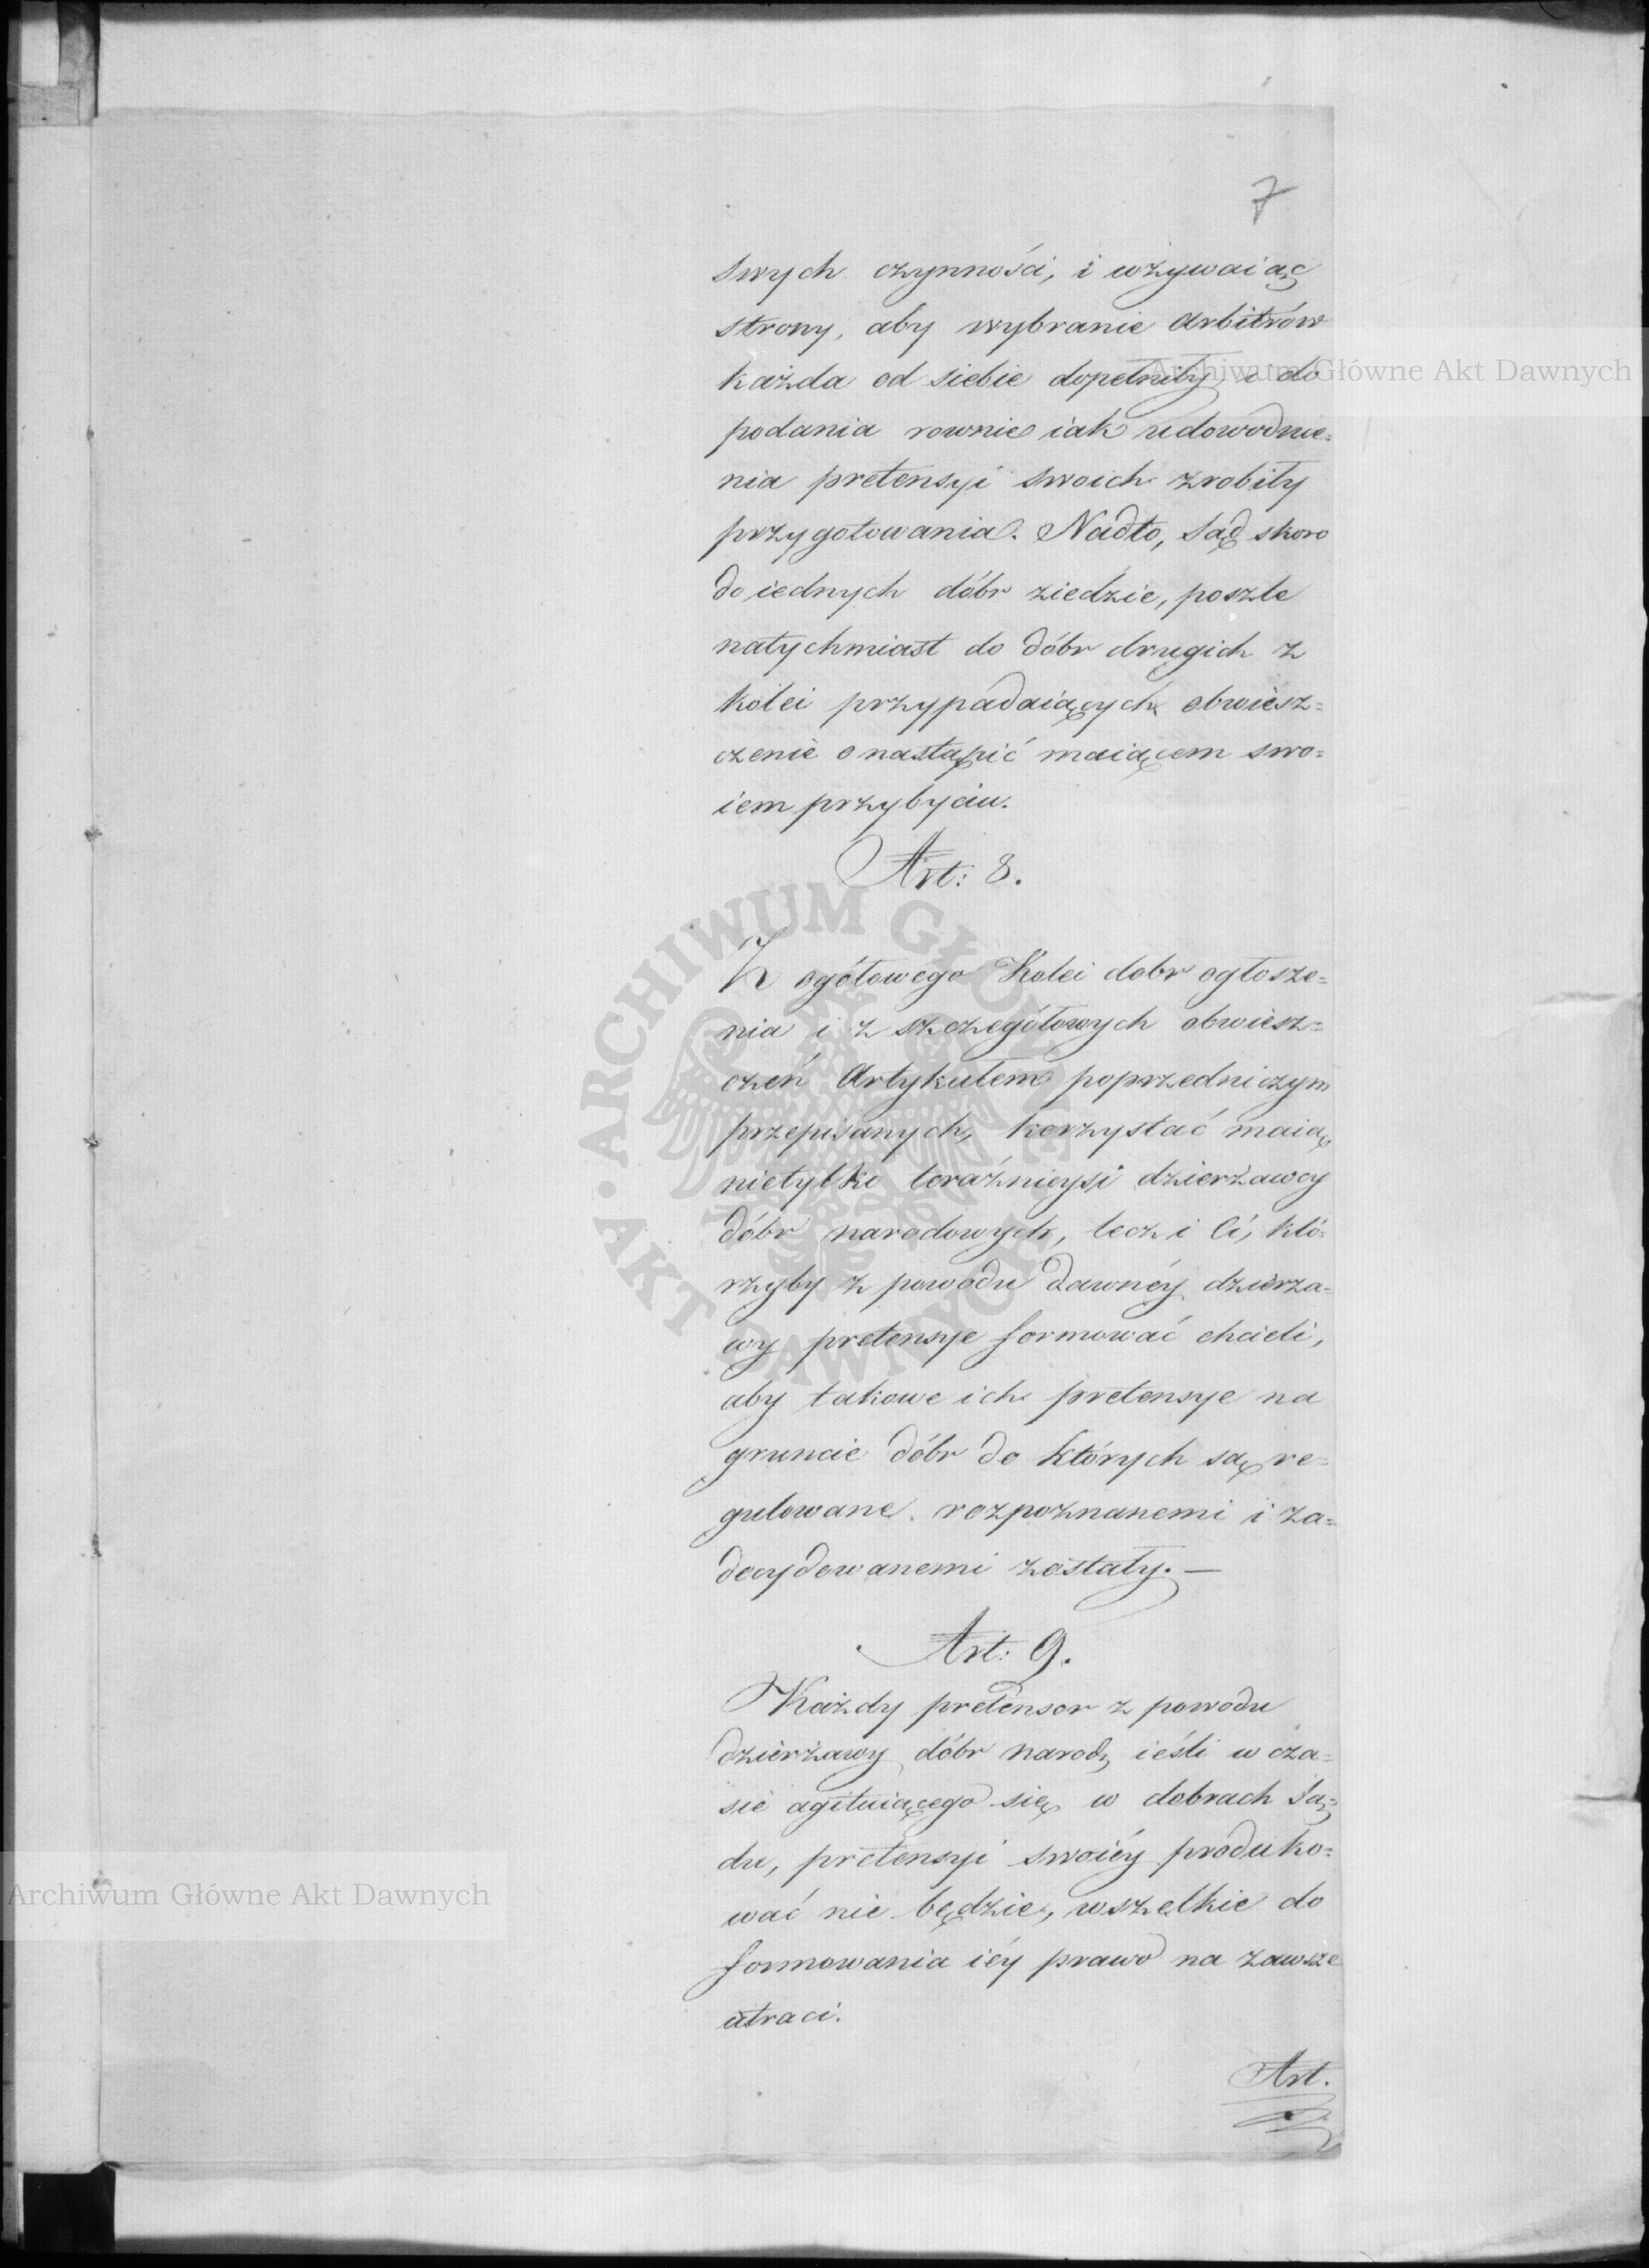 7
swych czynności, i wzywaiąc
strony, aby wybranie Arbitrów
każda od siebie dopełniły i do
podania rownie iak udowodnie=
nia pretensyi swoich zrobiły
przygotowania. Nadto, Sąd skoro
do iednych dóbr ziedzie, poszle
natychmiast do dóbr drugich z
kolei przypadaiących obwiesz=
czenie o nastąpić maiącem swo=
iem przybyciu.
Art: 8.
Z ogółowego Kolei dobr ogłosze=
nia i z szczegółowych obwiesz=
czeń Artykułem poprzedniczym
przepisanych, korzystać maią
nietylko teraźnieysi dzierżawcy
dóbr narodowych, lecz i Ci, któ=
rzyby z powodu dawnéy dzierża=
wy pretensye formować chcieli,
aby takowe ich pretensye na
gruncie dóbr do których są re=
gulowane. rozpoznanemi i za=
decydowanemi zostały. —
Art: 9.
Każdy pretensor z powodu
dzierżawy dóbr narod, ieśli w cza=
sie agituiącego się w dobrach Są=
du, pretensyi swoiéy produko=
wać nie będzie, wszelkie do
formowania iéy prawo na zawsze
utraci.
Art.
Archiwum Główne Akt Dawnych
Archiwum Główne Akt Dawnych
ARCHIWUM GŁÓWNE AKT DAWNYCH